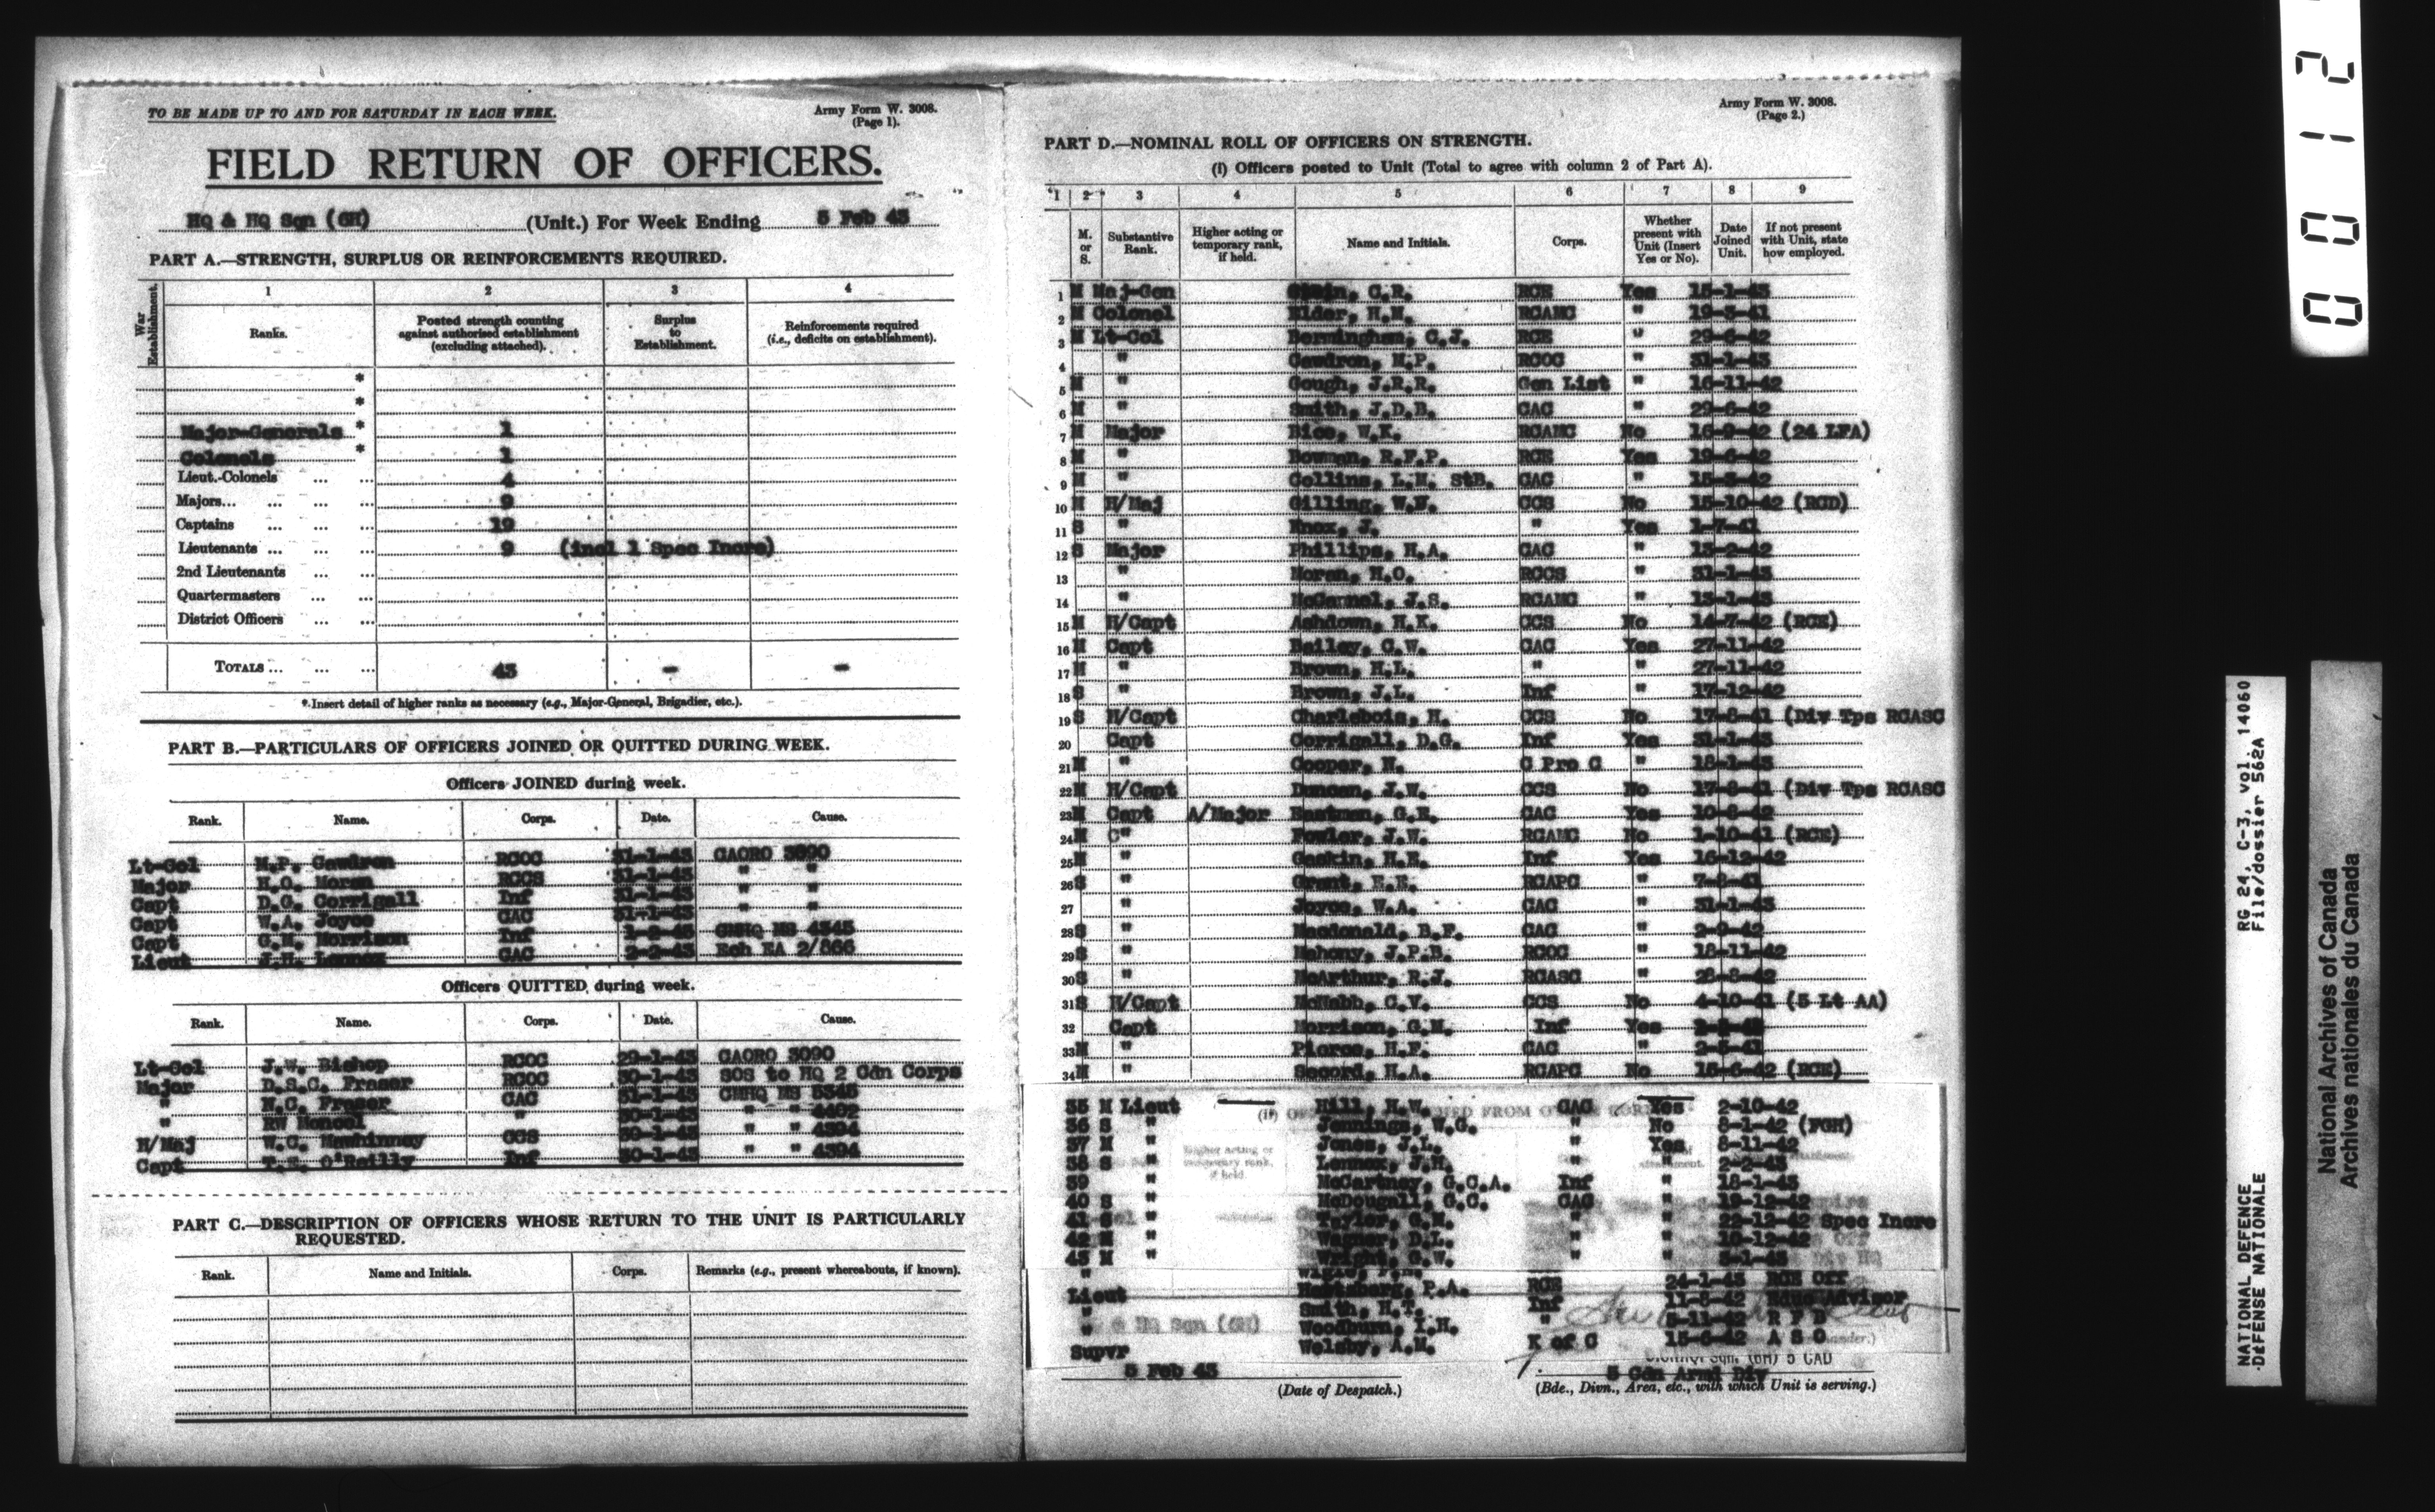 TO BE MADE UP TO AND FOR SATURDAY IN EACH WEEK.
Army Form W. 3008.
(Page 1).
FIELD RETURN OF OFFICERS.
HQ & HQ Sqn (6H) (Unit.) For Week Ending 5 Feb 43
PART A.—STRENGTH, SURPLUS OR REINFORCEMENTS REQUIRED.
War Establishment.
1 2 3 4
Ranks. Posted strength counting against authorised establishment (excluding attached). Surplus to Establishment. Reinforcements required (i.e., deficits on establishment).
*
*
Major-Generals * 1
Colonels * 1
Lieut.-Colonels ... ... 4
Majors... ... ... ... 9
Captains ... ... ... 19
Lieutenants ... ... ... 9 (incl 1 Spec Incre)
2nd Lieutenants ... ...
Quartermasters ... ...
District Officers ... ...
TOTALS ... ... ... 43 - -
* Insert detail of higher ranks as necessary (e.g., Major-General, Brigadier, etc.).
PART B.—PARTICULARS OF OFFICERS JOINED OR QUITTED DURING WEEK.
Officers JOINED during week.
Rank. Name. Corps. Date. Cause.
Lt-Col M.P. Cawdron RCOC 31-1-43 CAORO 3090
Major H.O. Moran RCCS 31-1-43 " "
Capt D.G. Corrigall Inf 31-1-43 " "
Capt W.A. Joyce CAC 31-1-43 " "
Capt G.M. Morrison Inf 1-2-43 CMHQ MS 4345
Lieut J.H. Lennox CAC 2-2-43 Ech EA 2/866
Officers QUITTED during week.
Rank. Name. Corps. Date. Cause.
Lt-Col J.W. Bishop RCOC 29-1-43 CAORO 3090
Major D.S.C. Fraser RCOC 30-1-43 SOS to HQ 2 Cdn Corps
" N.C. Fraser CAC 31-1-43 CMHQ MS 5345
" RW Moncel " 30-1-43 " " 4402
H/Maj W.C. Mawhinney CCS 30-1-43 " " 4394
Capt T.E. O'Reilly Inf 30-1-43 " " 4394
PART C.—DESCRIPTION OF OFFICERS WHOSE RETURN TO THE UNIT IS PARTICULARLY
REQUESTED.
Rank. Name and Initials. Corps. Remarks (e.g., present whereabouts, if known).
Army Form W. 3008.
(Page 2.)
PART D.—NOMINAL ROLL OF OFFICERS ON STRENGTH.
(i) Officers posted to Unit (Total to agree with column 2 of Part A).
1 2 3 4 5 6 7 8 9
M. or S. Substantive Rank. Higher acting or temporary rank, if held. Name and Initials. Corps. Whether present with Unit (Insert Yes or No). Date Joined Unit. If not present with Unit, state how employed.
1 M Maj-Gen C.R. RCE Yes 15-1-43
2 M Colonel Elder, H.M. RCAMC " 19-3-41
3 M Lt-Col Bermingham, C.J. RCE " 29-6-42
4 " Cawdron, M.P. RCOC " 31-1-43
5 M " Gough, J.R.R. Gen List " 16-11-42
6 M " Smith, J.D.B. CAC " 29-6-42
7 M Major Bice, W.K. RCAMC No 16-9-42 (24 LFA)
8 M " Bowman, R.F.P. RCE Yes 19-6-42
9 M " Collins, L.H. StB. CAC " 15-3-42
10 M H/Maj Gilling, W.W. CCS No 15-10-42 (RCD)
11 S " Knox, J. " Yes 1-7-41
12 S Major Phillips, H.A. CAC " 13-2-42
13 " Moran, H.O. RCCS " 31-1-43
14 " McCannel, J.S. RCAMC " 13-1-43
15 M H/Capt Ashdown, H.K. CCS No 14-7-42 (RCE)
16 M Capt Bailey, C.W. CAC Yes 27-11-42
17 M " Brown, H.L. " " 27-11-42
18 S " Brown, J.L. Inf " 17-12-42
19 S H/Capt Charlebois, H. CCS No 17-8-41 (Div Tps RCASC
20 Capt Corrigall, D.G. Inf Yes 31-1-43
21 M " Cooper, N. C Pro C " 18-1-43
22 M H/Capt Duncan, J.W. CCS No 17-8-41 (Div Tps RCASC
23 M Capt A/Major Eastman, G.E. CAC Yes 10-8-42
24 M C" Fowler, J.W. RCAMC No 1-10-41 (RCE)
25 M " Gaskin, H.R. Inf Yes 16-12-42
26 S " Grant, E.E. RCAPC " 7-8-41
27 " Joyce, W.A. CAC " 31-1-43
28 S " Macdonald, B.F. CAC " 2-9-42
29 S " Mahony, J.P.B. RCOC " 18-11-42
30 S " McArthur, R.J. RCASC " 28-8-42
31 S H/Capt McNabb, C.V. CCS No 4-10-41 (5 Lt AA)
32 Capt Morrison, G.M. Inf Yes
33 M " Pierce, H.F. CAC " 2-5-41
34 M " Secord, H.A. RCAPC No 16-6-42 (RCE)
35 M Lieut Hill, H.W. CAC Yes 2-10-42
36 S " Jennings, W.G. " No 8-1-42 (FGH)
37 M " Jones, J.L. " Yes 8-11-42
38 S " Lennox, J.H. " " 2-2-43
39 " McCartney, G.C.A. Inf " 18-1-43
40 S " McDougall, G.C. CAC " 19-12-42
41 S " Taylor, G.M. " " 22-12-42 Spec Incre
42 M " Wagner, D.L. " " 10-12-42
43 M " Wright, G.W. " " 5-1-43
Lieut P.A. RCE 24-1-43 RCE Off
" Smith, H.T. Inf 11-8-42 Educ Advisor
" Woodburn, I.H. " 5-11-42 R F D
Supvr Welsby, A.M. K of C 15-6-42 A S O
& HQ Sqn (6H)
5 Feb 43
(Date of Despatch.)
Sqn. (6H) 5 CAD
5 Cdn Armd Div
(Bde., Divn., Area, etc., with which Unit is serving.)
0012
RG 24, C-3, vol. 14060
File/dossier 562A
NATIONAL DEFENCE
DÉFENSE NATIONALE
National Archives of Canada
Archives nationales du Canada